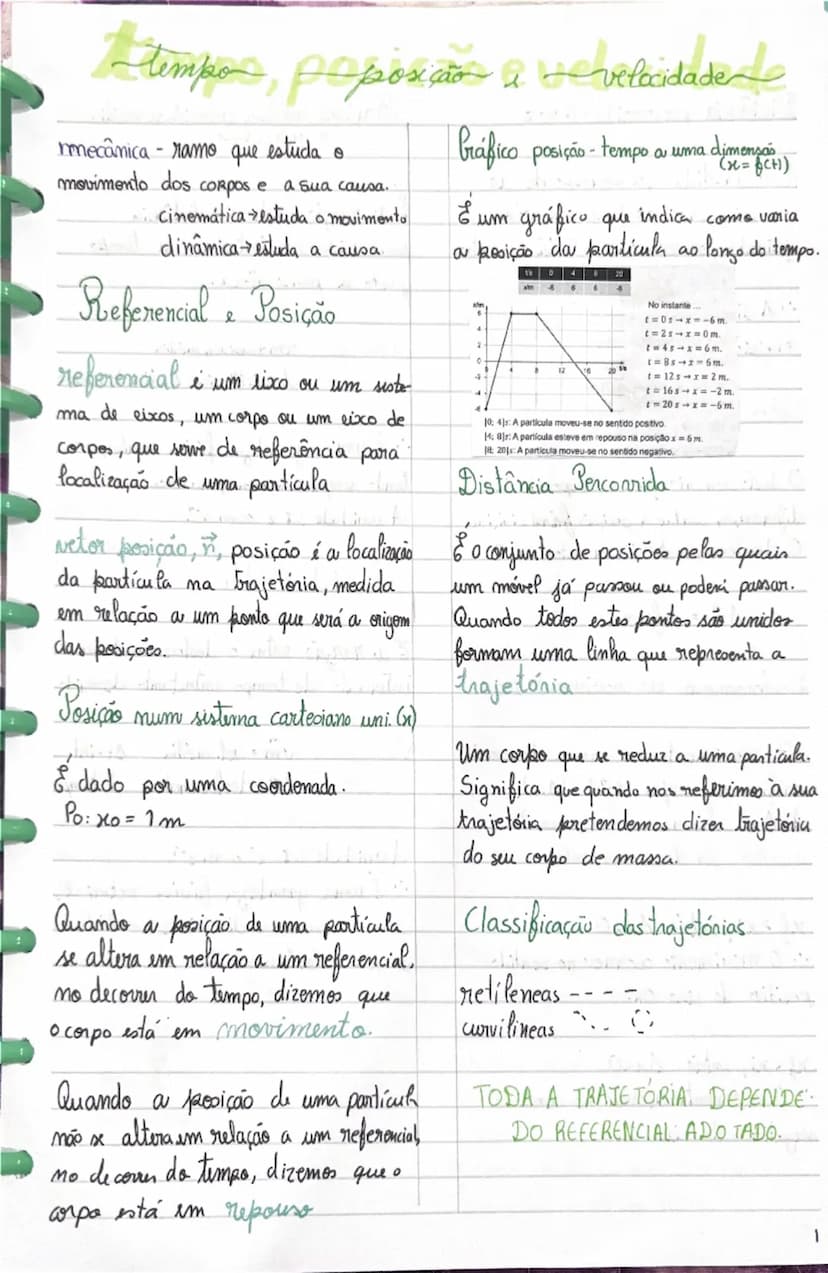 tempo, posição e velocidade
tempo posição e velocidade
mecânica - ramo que estuda o
movimento dos corpos e a sua causa.
cinemática → estuda o movimento
dinâmica → estuda a causa
Referencial e Posição
referencial é um eixo ou um siste-
ma de eixos, um corpo ou um eixo de
corpos, que serve de referência para
localização de uma partícula
vetor posição, r⃗, posição é a localização
da partícula na trajetória, medida
em relação a um ponto que será a origem
das posições.
Posição num sistema cartesiano uni. (x)
É dado por uma coordenada.
P₀: x₀ = 1 m
Quando a posição de uma partícula
se altera em relação a um referencial,
no decorrer do tempo, dizemos que
o corpo está em movimento.
Quando a posição de uma partícula
não se altera em relação a um referencial,
no decorrer do tempo, dizemos que o
corpo está em repouso
Gráfico posição - tempo a uma dimensão
(x = f(t))
É um gráfico que indica como varia
a posição da partícula ao longo do tempo.
t/s 0 4 8 20
x/m -6 6 6 -6
x/m
6
4
2
0
-2
-4
-6
0 4 8 12 16 20 t/s
No instante ...
t = 0 s → x = −6 m.
t = 2 s → x = 0 m.
t = 4 s → x = 6 m.
t = 8 s → x = 6 m.
t = 12 s → x = 2 m.
t = 16 s → x = −2 m.
t = 20 s → x = −6 m.
]0; 4[s: A partícula moveu-se no sentido positivo.
]4; 8[s: A partícula esteve em repouso na posição x = 6 m.
]8; 20[s: A partícula moveu-se no sentido negativo.
Distância Percorrida
É o conjunto de posições pelas quais
um móvel já passou ou poderá passar.
Quando todos estes pontos são unidos
formam uma linha que representa a
trajetória
Um corpo que se reduz a uma partícula.
Significa que quando nos referimos à sua
trajetória pretendemos dizer trajetória
do seu corpo de massa.
Classificação das trajetórias
retilíneas - - - -
curvilíneas
TODA A TRAJETÓRIA DEPENDE
DO REFERENCIAL ADOTADO.
1